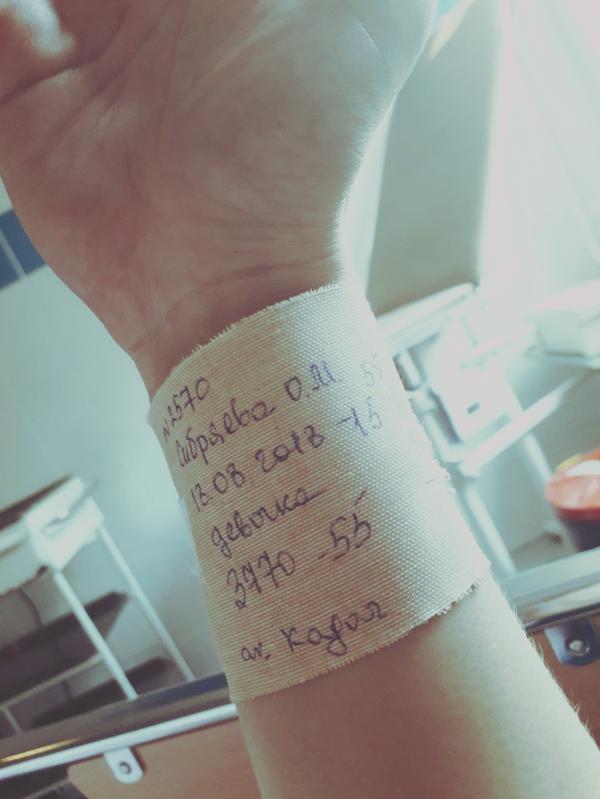 №2570
Сибряева О.М.
13.08.2013 -15
девочка
3770 - 55
ак.